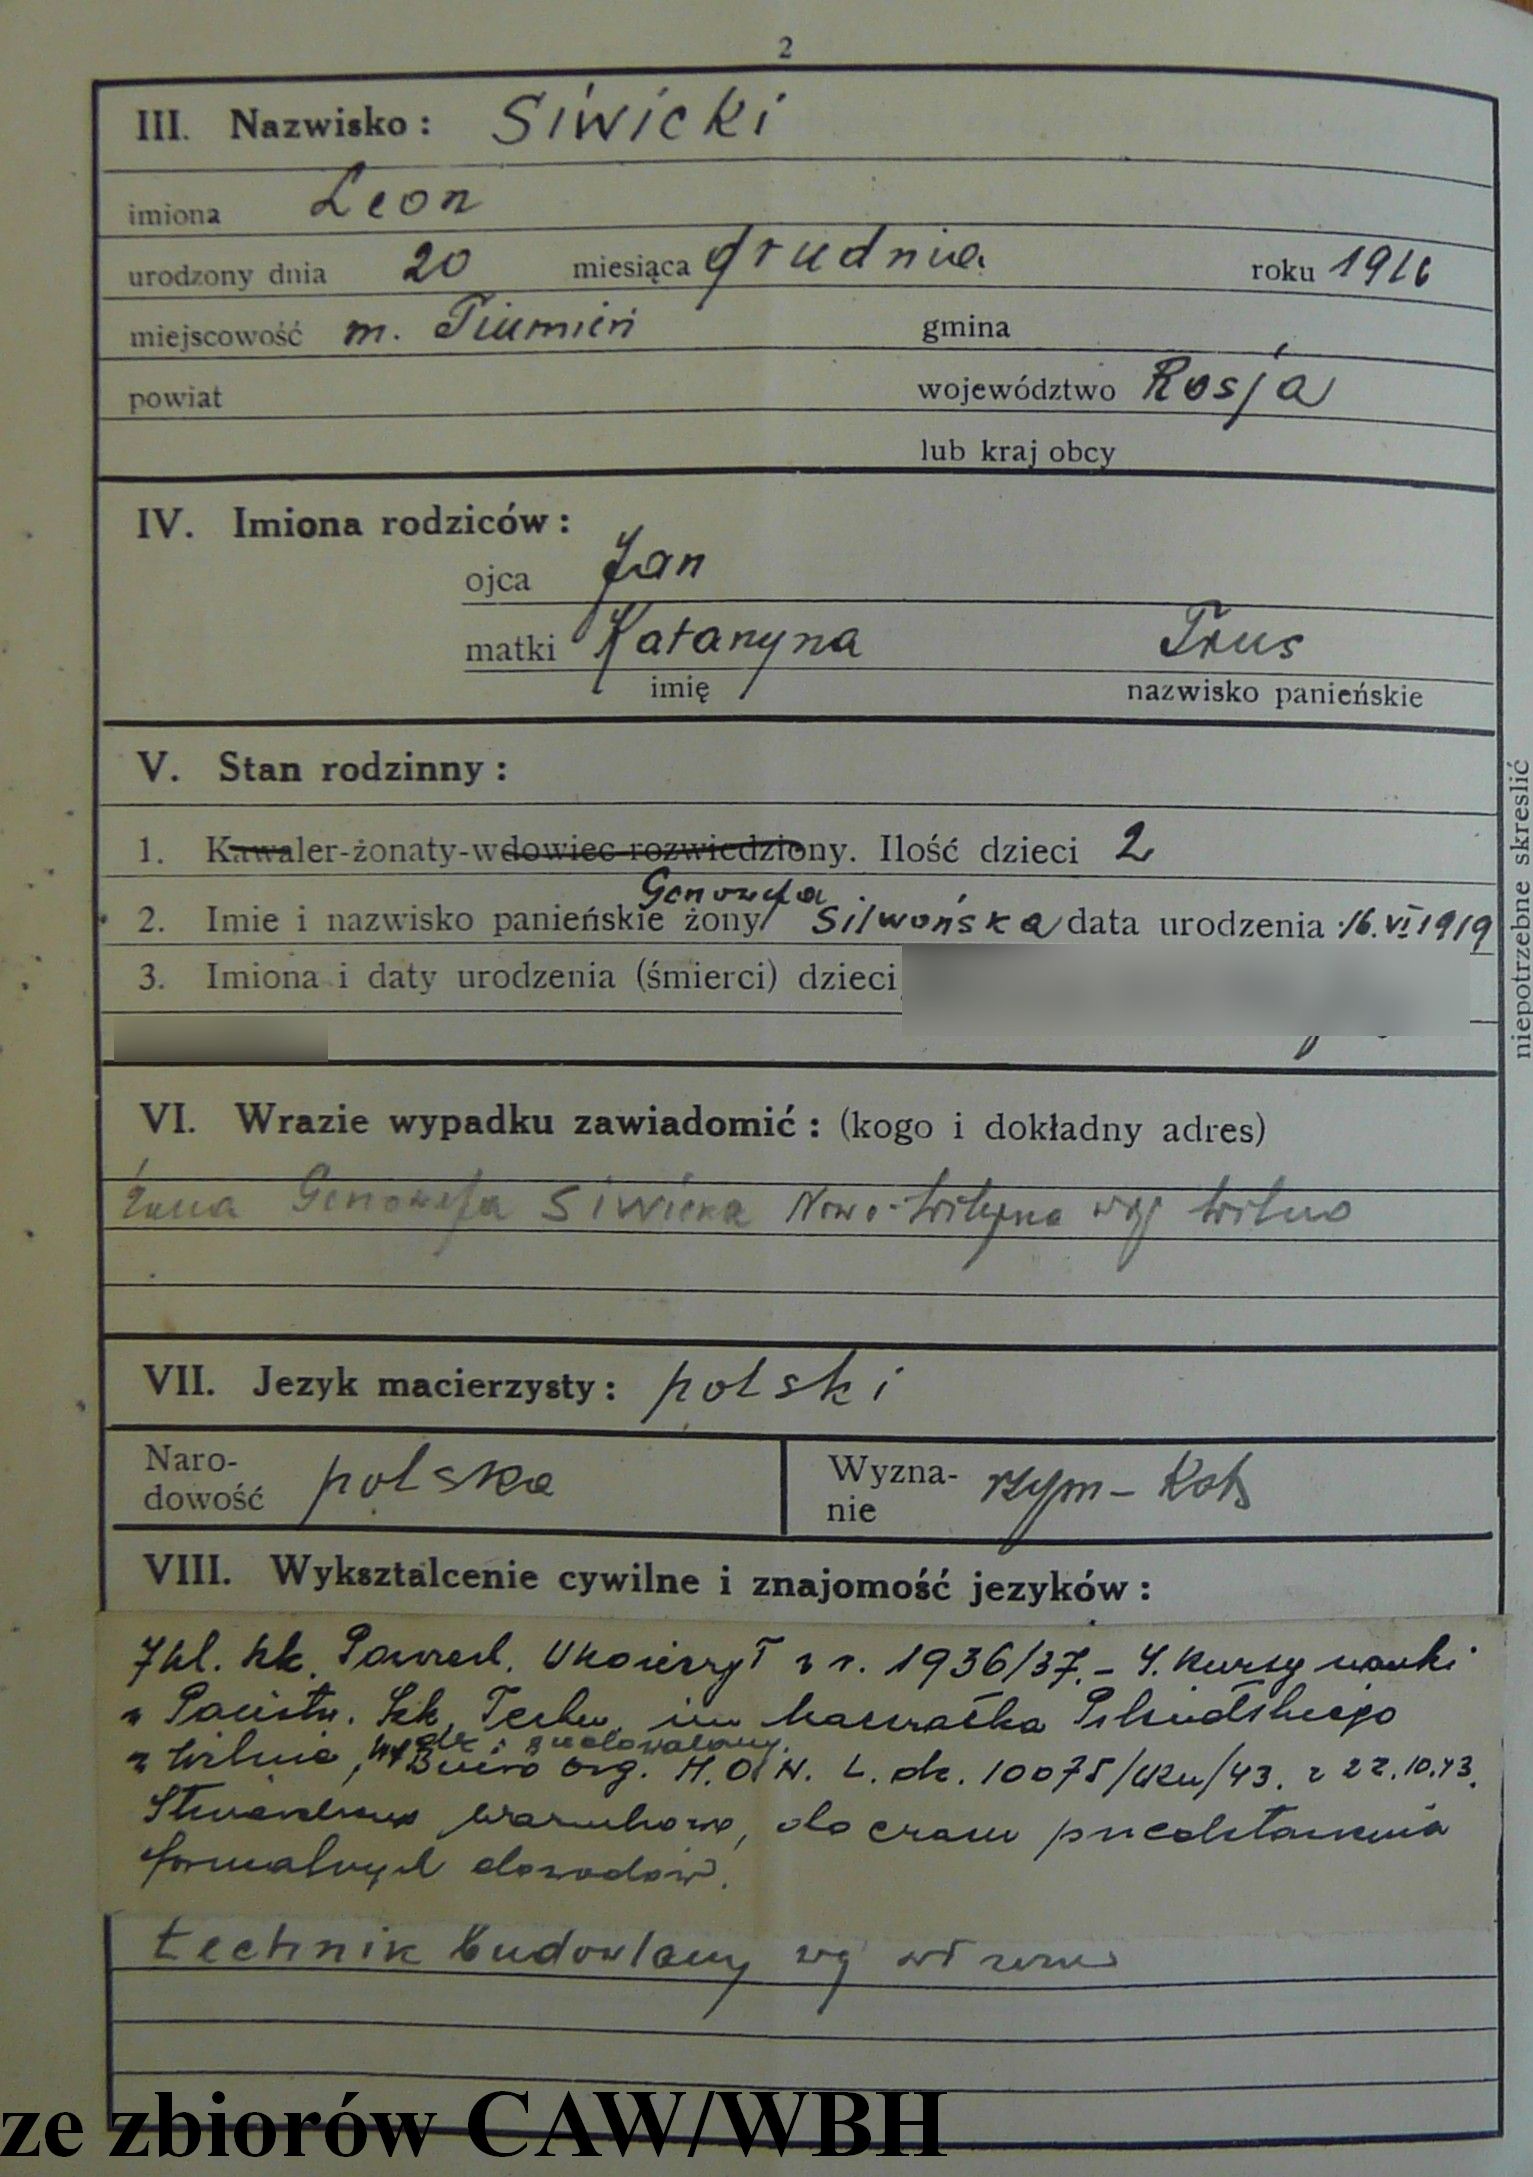 2
III. Nazwisko: Siwicki
imiona Leon
urodzony dnia 20 miesiąca grudnia roku 1916
miejscowość m. Tiumień gmina
powiat województwo Rosja
lub kraj obcy
IV. Imiona rodziców:
ojca Jan
matki Katarzyna Trus
imię nazwisko panieńskie
V. Stan rodzinny:
1. Kawaler-żonaty-wdowiec-rozwiedziony. Ilość dzieci 2
Genowefa
2. Imie i nazwisko panieńskie żony Silwońska data urodzenia 16.VI 1919
3. Imiona i daty urodzenia (śmierci) dzieci
niepotrzebne skreslić
VI. Wrazie wypadku zawiadomić: (kogo i dokładny adres)
Żona Genowefa Siwicka Nowo-Wilejna woj Wilno
VII. Jezyk macierzysty: polski
Naro-
dowość polska
Wyzna-
nie rzym-Kat
VIII. Wyksztalcenie cywilne i znajomość jezyków:
7 kl. szk. Powsz. Ukończył w r. 1936/37. - 4. kursy nauki
w Państw. Szk. Techn. im Marszałka Piłsudskiego
w Wilnie, budowlany.
Biuro Org. M.O.N. L. dz. 10075/ /43. z 22.10.43.
warunkowo, do czasu przedstawienia
formalnych dowodów.
technik budowlany wg
ze zbiorów CAW/WBH